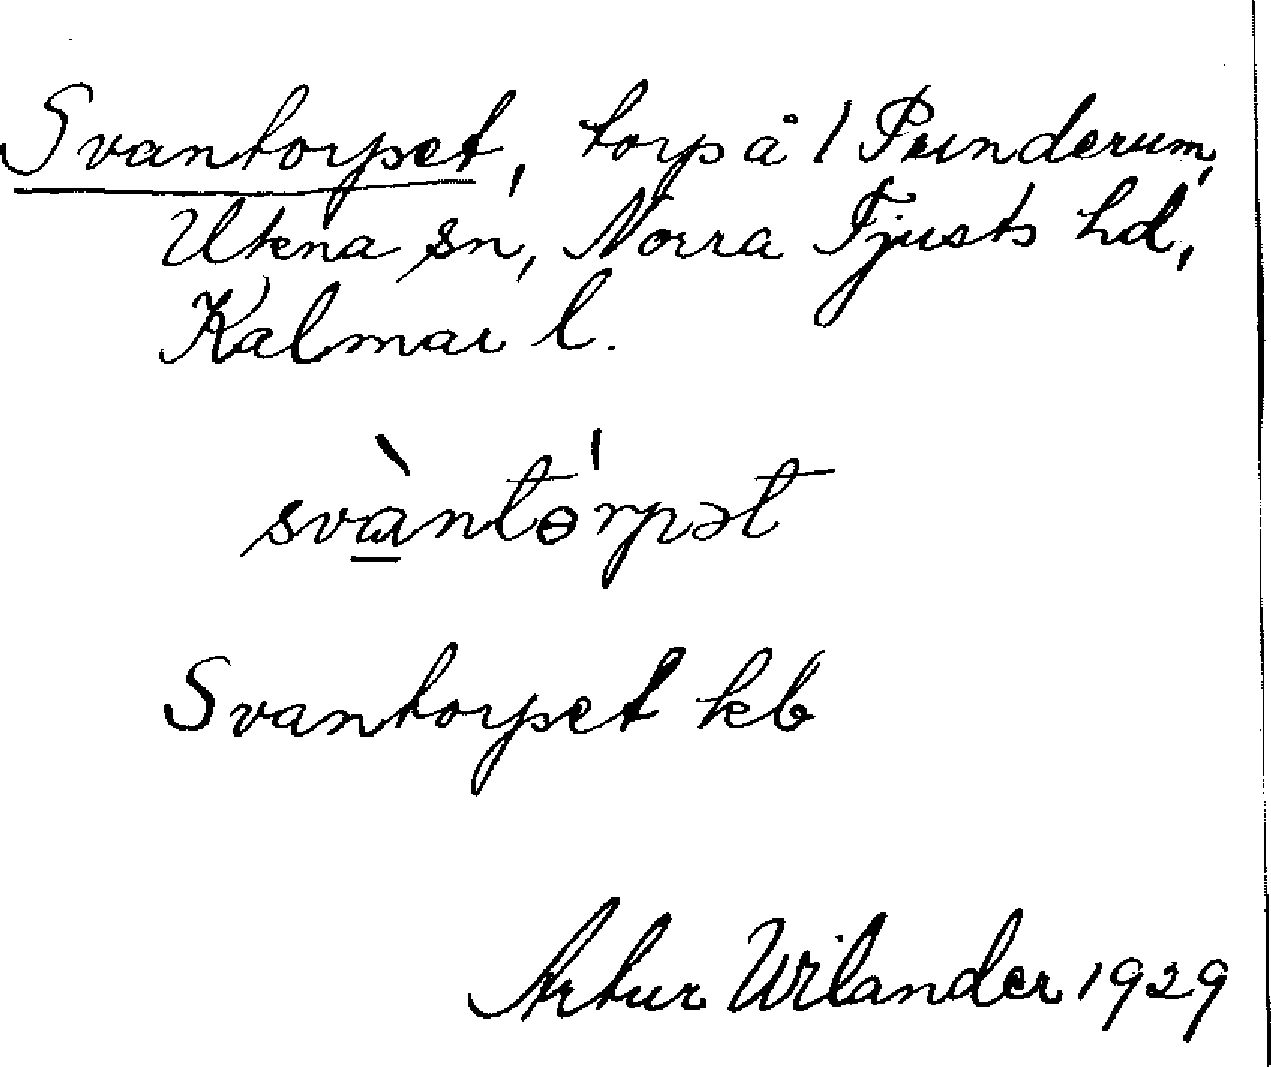 Svantorpet, torp å 1 Prinderum,
Ukna sn, Norra Tjusts hd,
Kalmar l.
svàntɵ́rpət
Svantorpet kb
Artur Wilander 1929